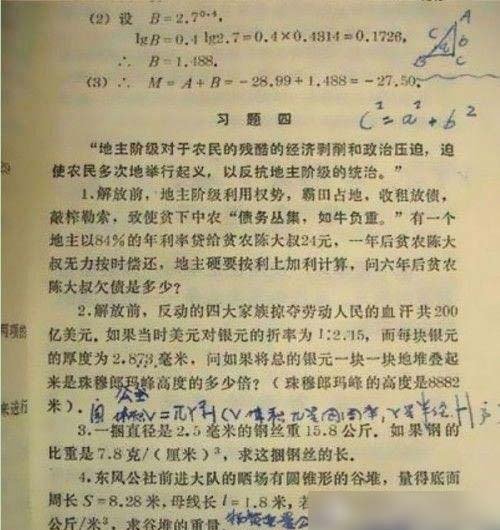 (2) 设 B=2.7⁰·⁴,
lgB=0.4 lg2.7=0.4×0.4314=0.1726,
∴ B=1.488.
(3) ∴ M=A+B=-28.99+1.488=-27.50.
A
C
b
B
C
习题四
C²=a²+b²
“地主阶级对于农民的残酷的经济剥削和政治压迫，迫
使农民多次地举行起义，以反抗地主阶级的统治。”
1.解放前，地主阶级利用权势，霸田占地，收租放债，
敲榨勒索，致使贫下中农“债务丛集，如牛负重。”有一个
地主以84%的年利率贷给贫农陈大叔24元，一年后贫农陈大
叔无力按时偿还，地主硬要按利上加利计算，问六年后贫农
陈大叔欠债是多少？
2.解放前，反动的四大家族掠夺劳动人民的血汗共200
亿美元.如果当时美元对银元的折率为1:2.15，而每块银元
的厚度为2.873毫米，问如果将总的银元一块一块地堆叠起
来是珠穆郎玛峰高度的多少倍？(珠穆郎玛峰的高度是8882
米).
3.一捆直径是2.5毫米的钢丝重15.8公斤.如果钢的
比重是7.8克/(厘米)³，求这捆钢丝的长.
4.东风公社前进大队的晒场有圆锥形的谷堆，量得底面
周长S=8.28米,母线长l=1.8米,若
公斤/米³，求谷堆的重量
来进行